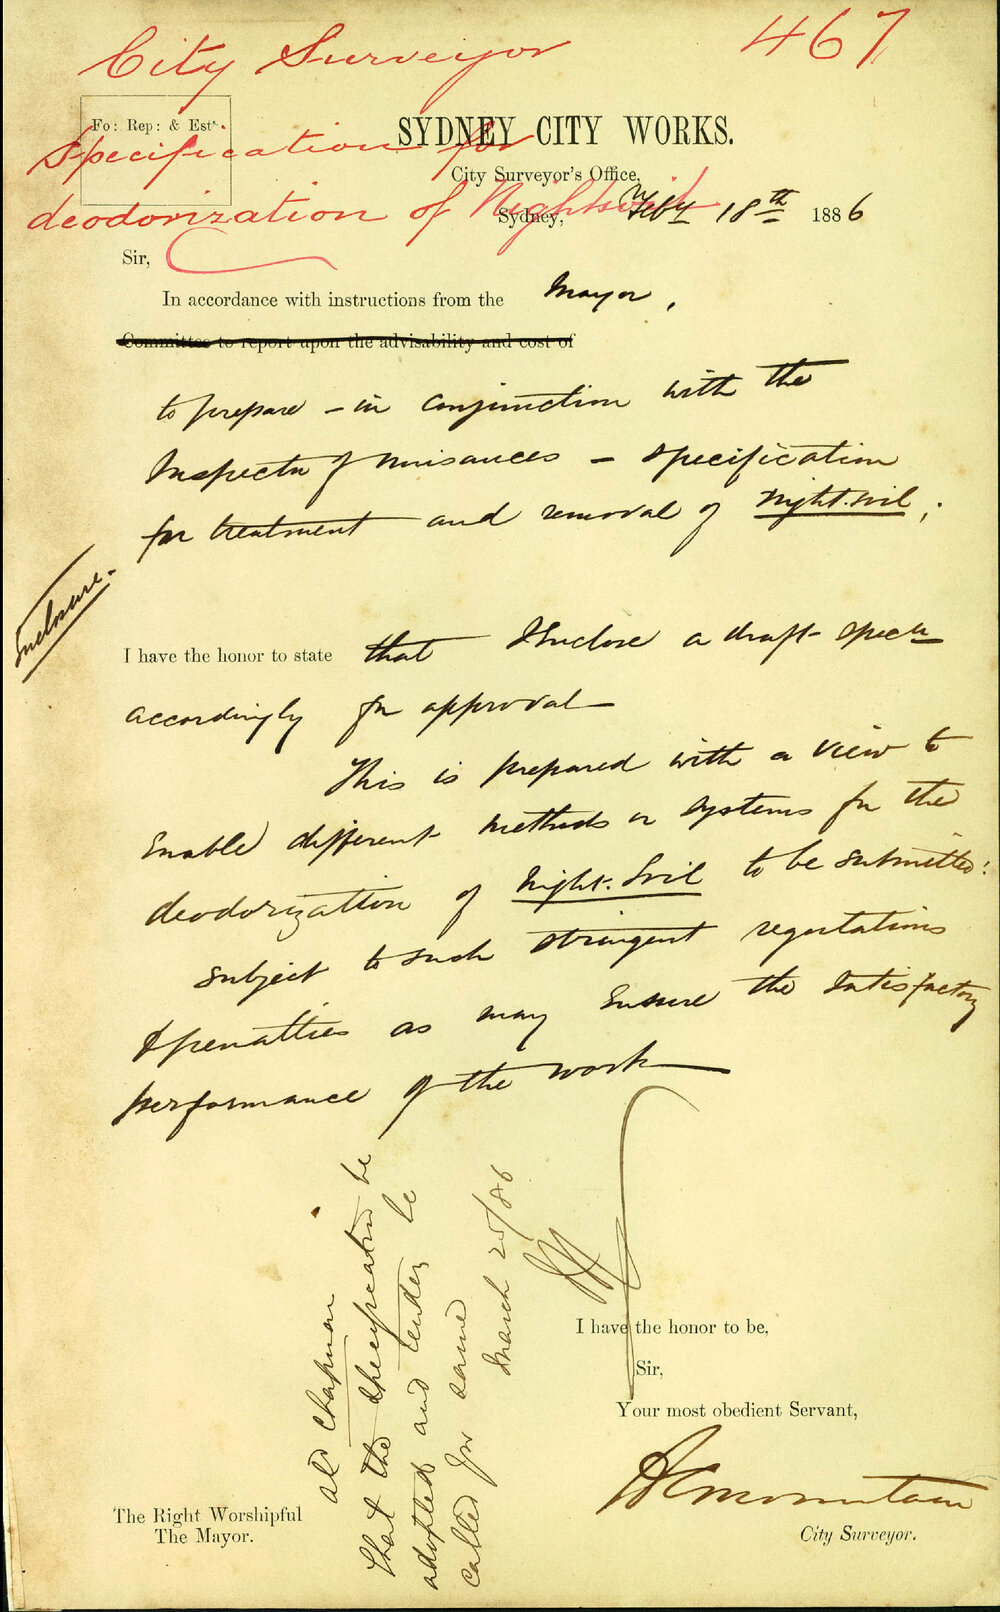 City Surveyor 467
Fo: Rep: & Ests.
Specification for
SYDNEY CITY WORKS.
City Surveyor's Office,
deodorization of Nightsoil
Sydney, Feby 18th 1886
Sir,
In accordance with instructions from the Mayor,
Committee to report upon the advisability and cost of
to prepare – in conjunction with the
Inspector of Nuisances – specification
for treatment and removal of night-soil;
Enclosure.
I have the honor to state that I enclose a draft specn
accordingly for approval
This is prepared with a view to
Enable different methods or systems for the
deodorization of night-soil to be submitted:
subject to such stringent regulations
& penalties as may Ensure the satisfactory
performance of the work
Ald Chapman
That the specification be
adopted and tenders be
called for same
March 25/86
I have the honor to be,
Sir,
Your most obedient Servant,
The Right Worshipful
The Mayor.
City Surveyor.